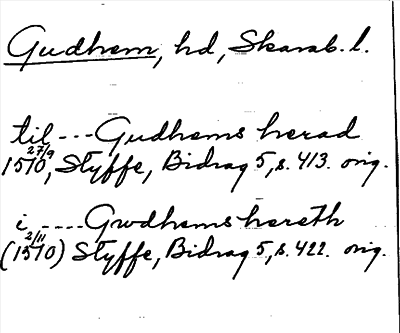 Gudhem, hd, Skarab. l.
til --- Gudhems herad
27/9
1510, Styffe, Bidrag 5, s. 413. orig.
i ---- Gwdhems hereth
2/11
(1510) Styffe, Bidrag 5, s. 422. orig.